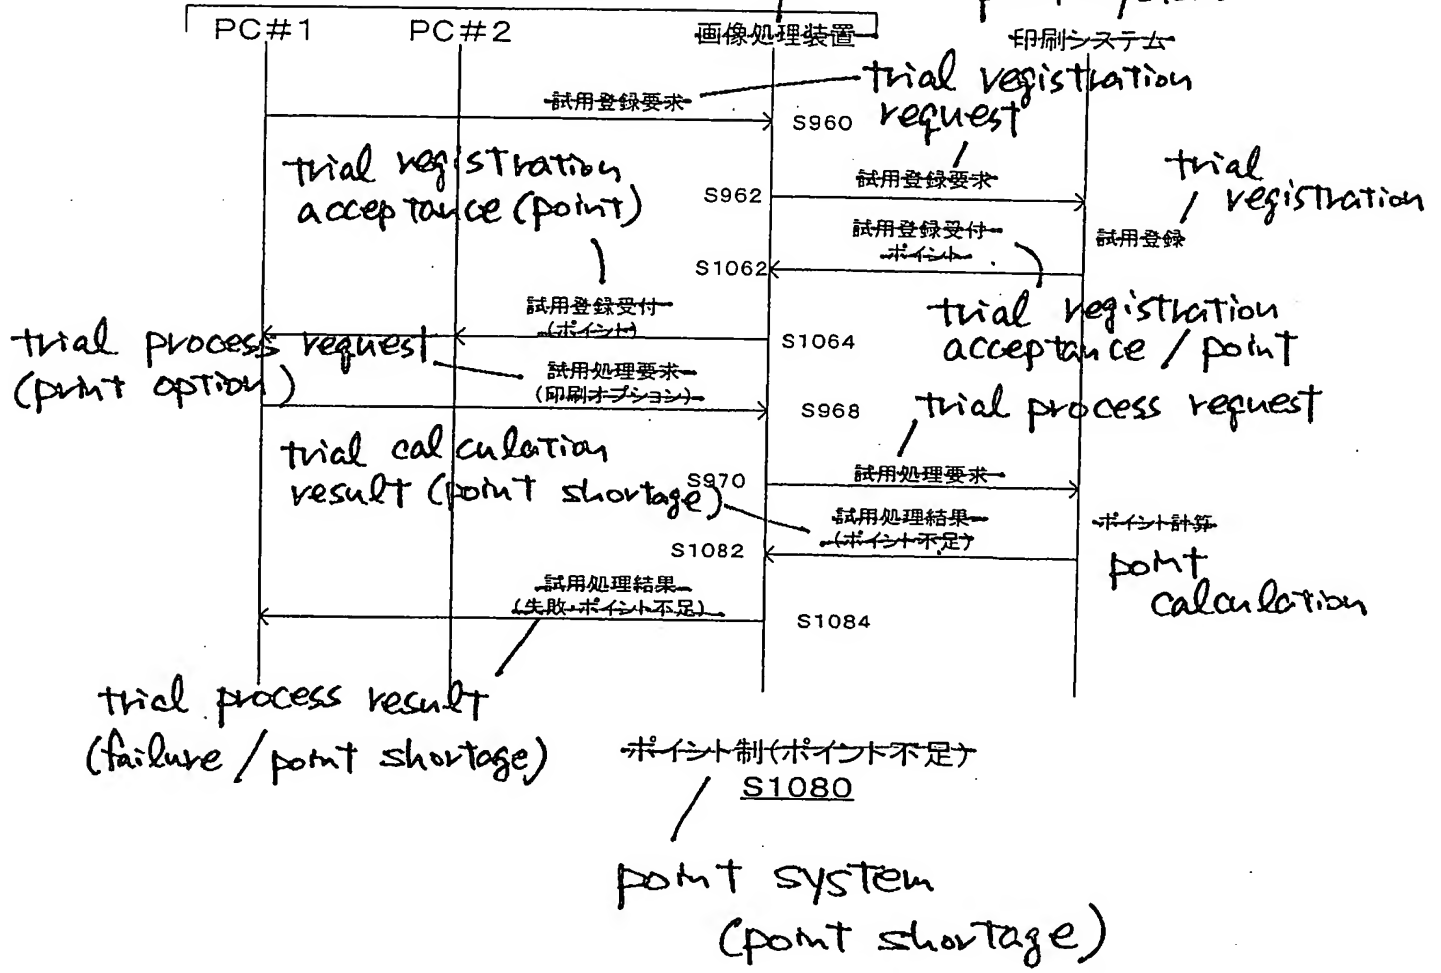 PC#1 PC#2 画像処理装置 印刷システム
試用登録要求
trial registration
request
S960
trial registration
acceptance (point)
試用登録要求
S962
trial
registration
試用登録受付
ポイント
試用登録
S1062
試用登録受付
(ポイント)
S1064
trial registration
acceptance / point
trial process request
(print option)
試用処理要求
(印刷オプション)
S968
trial process request
trial calculation
result (point shortage)
S970
試用処理要求
試用処理結果
(ポイント不足)
ポイント計算
S1082
point
calculation
試用処理結果
(失敗・ポイント不足)
S1084
trial process result
(failure / point shortage)
ポイント制(ポイント不足)
S1080
point system
(point shortage)